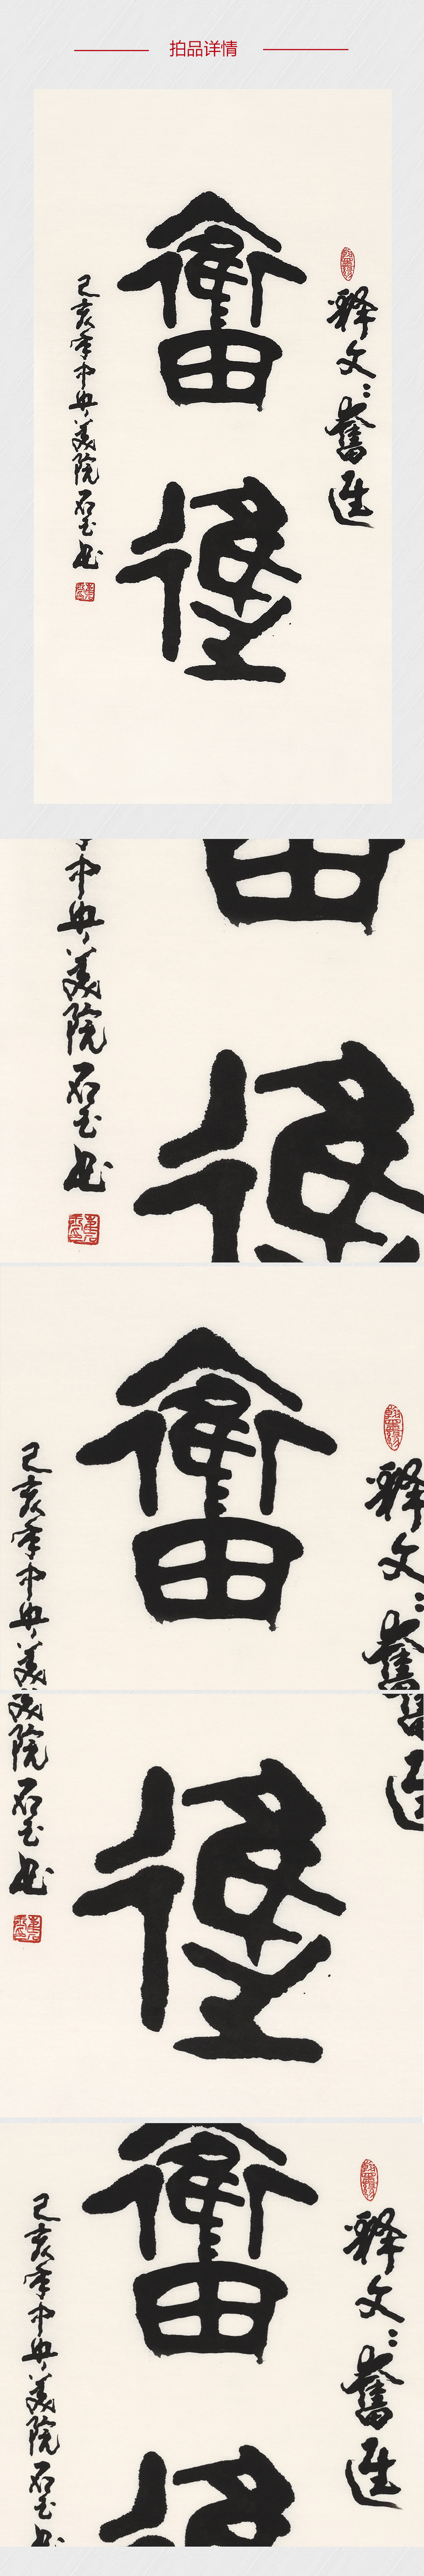 拍品详情
奮進
释文：奮進
己亥年中央美院石玉书
中央美院石玉书
奮
己亥年中央美
释文：奮
美院石玉书
進
奮進
己亥年中央美院石玉书
奮
释文：奮進